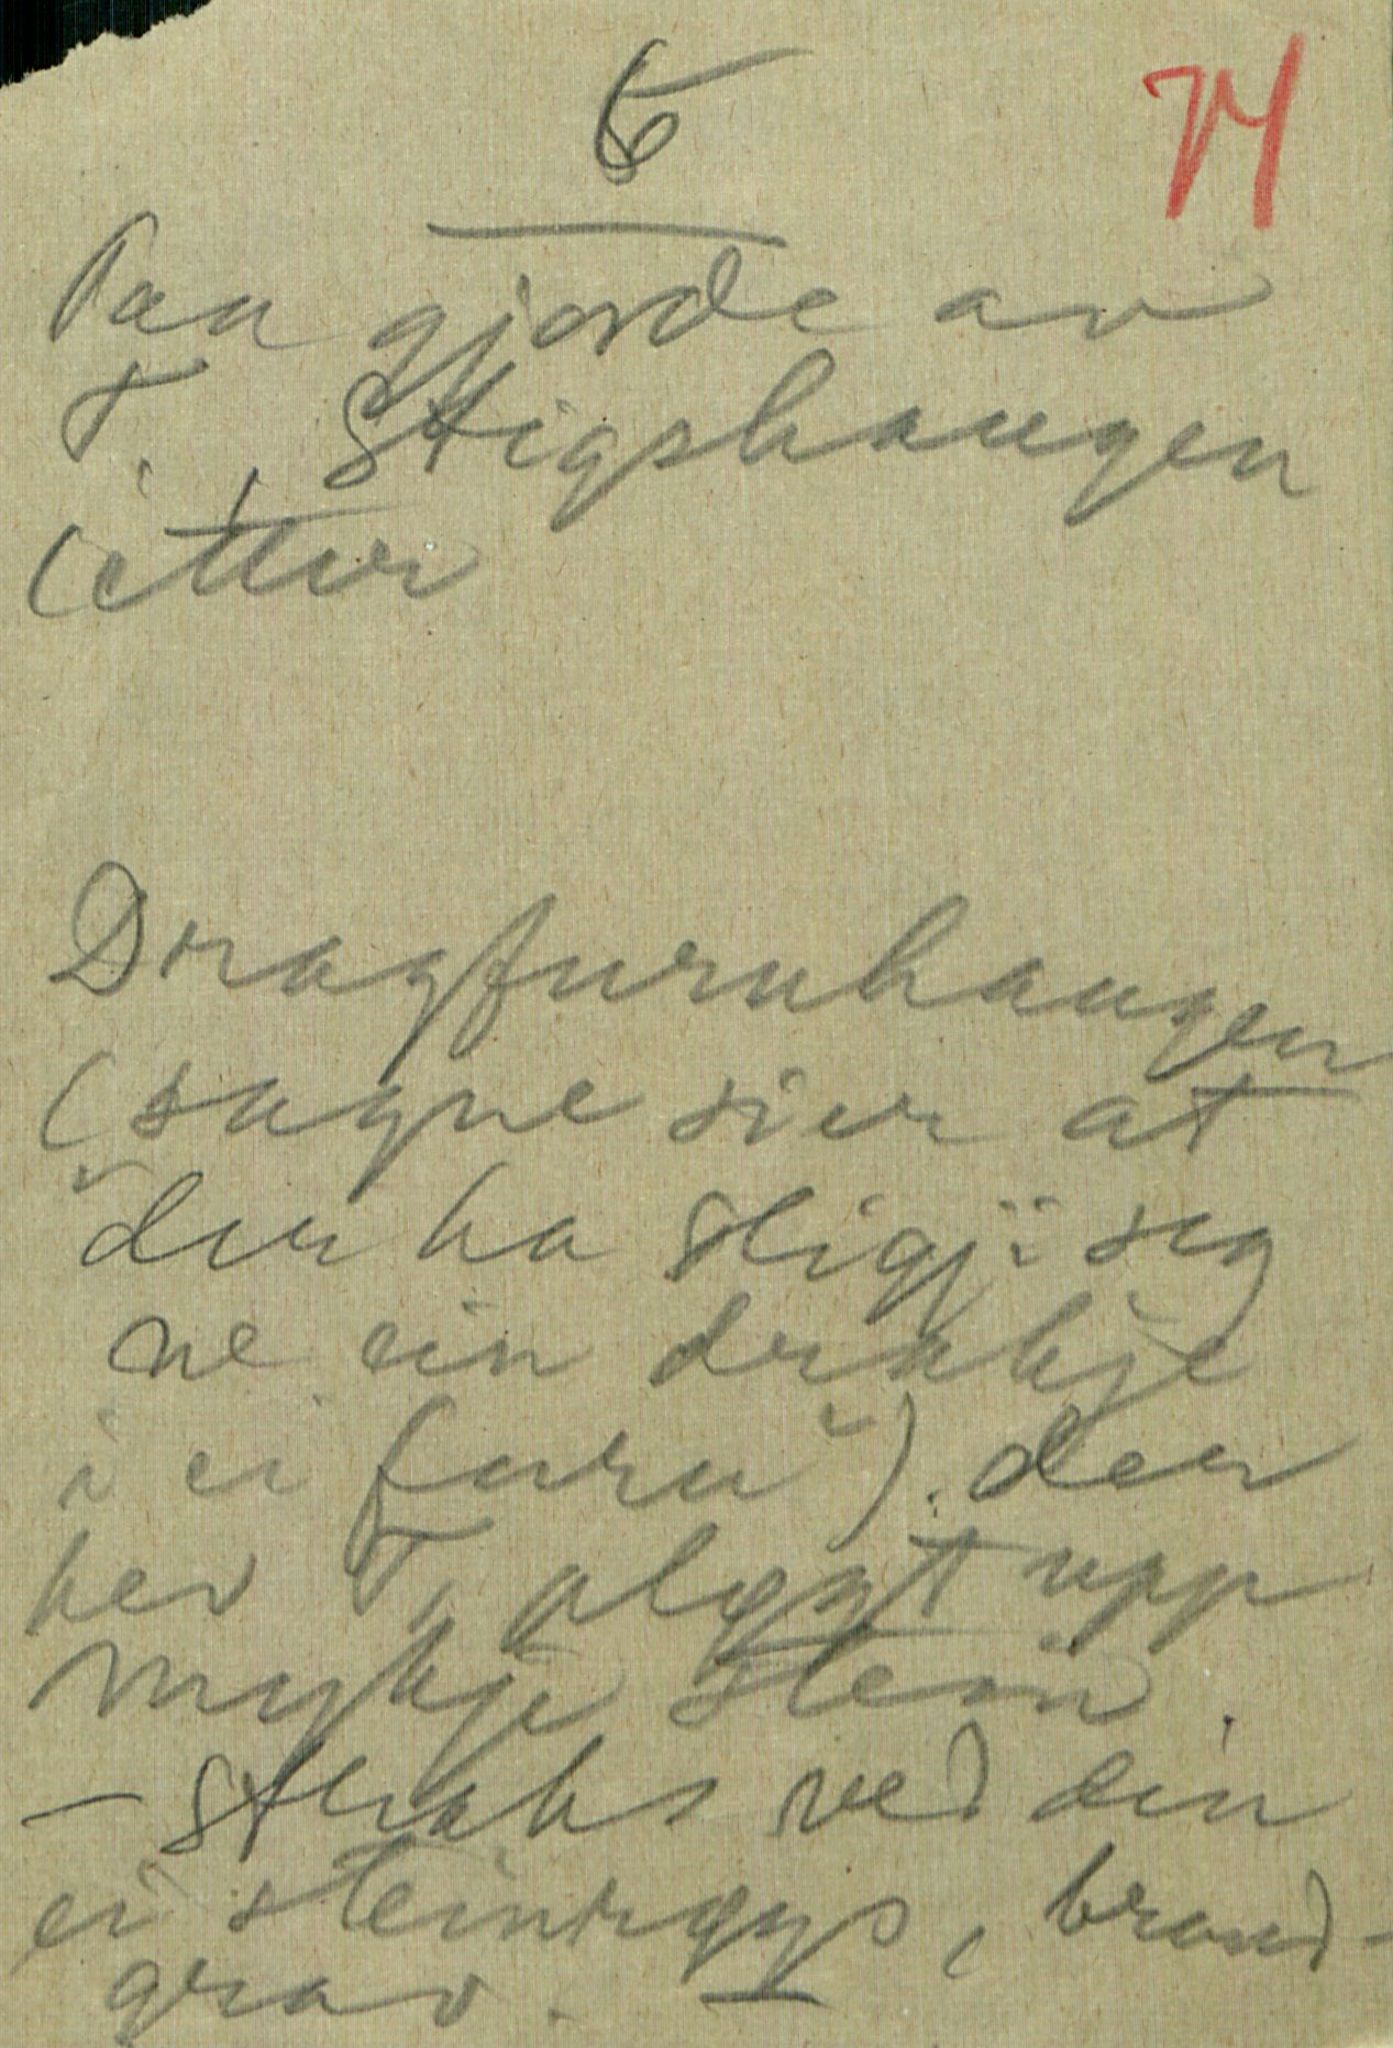 5
74
Paa gjorde av
T. Stigshaugen
(etter
Dragfuruhaugen
(sagne sier at
der ha sligji seg
ne ein drakje
i ei furu). der
hev T. olggt upp
mykje stein.
- straks ved ein
ei steinrøys, brand-
grav. -